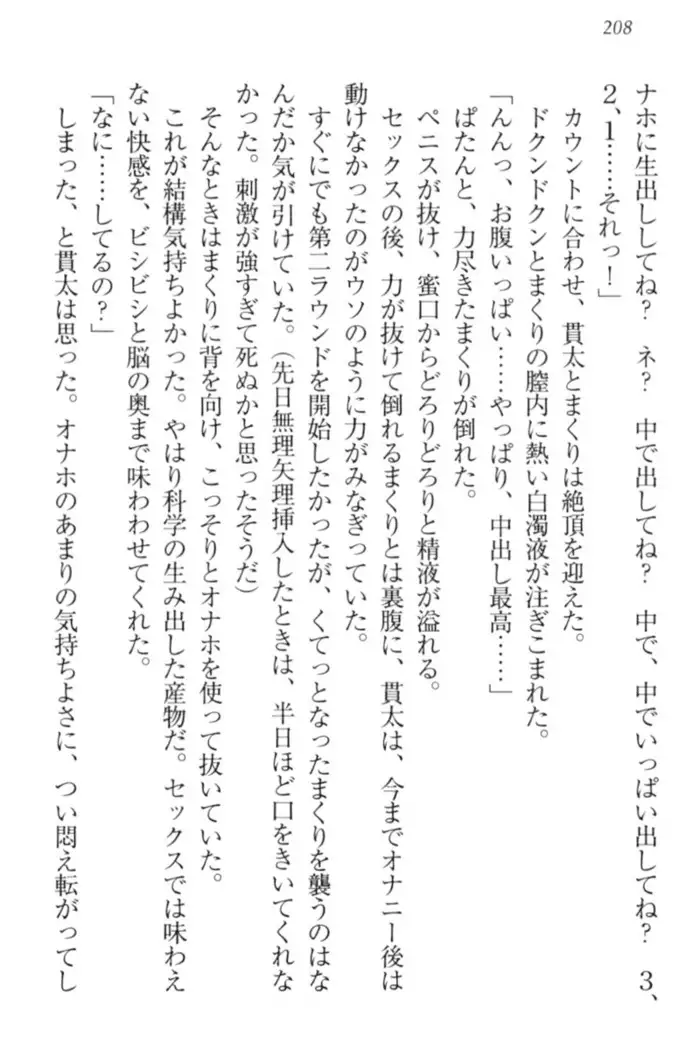 208
ナホに生出ししてね？　ネ？　中で出してね？　中で、中でいっぱい出してね？　３、
２、１……それっ！」
カウントに合わせ、貫太とまくりは絶頂を迎えた。
ドクンドクンとまくりの膣内に熱い白濁液が注ぎこまれた。
「んんっ、お腹いっぱい……やっぱり、中出し最高……」
ぱたんと、力尽きたまくりが倒れた。
ペニスが抜け、蜜口からどろりどろりと精液が溢れる。
セックスの後、力が抜けて倒れるまくりとは裏腹に、貫太は、今までオナニー後は
動けなかったのがウソのように力がみなぎっていた。
すぐにでも第二ラウンドを開始したかったが、くてっとなったまくりを襲うのはな
んだか気が引けていた。（先日無理矢理挿入したときは、半日ほど口をきいてくれな
かった。刺激が強すぎて死ぬかと思ったそうだ）
そんなときはまくりに背を向け、こっそりとオナホを使って抜いていた。
これが結構気持ちよかった。やはり科学の生み出した産物だ。セックスでは味わえ
ない快感を、ビシビシと脳の奥まで味わわせてくれた。
「なに……してるの？」
しまった、と貫太は思った。オナホのあまりの気持ちよさに、つい悶え転がってし